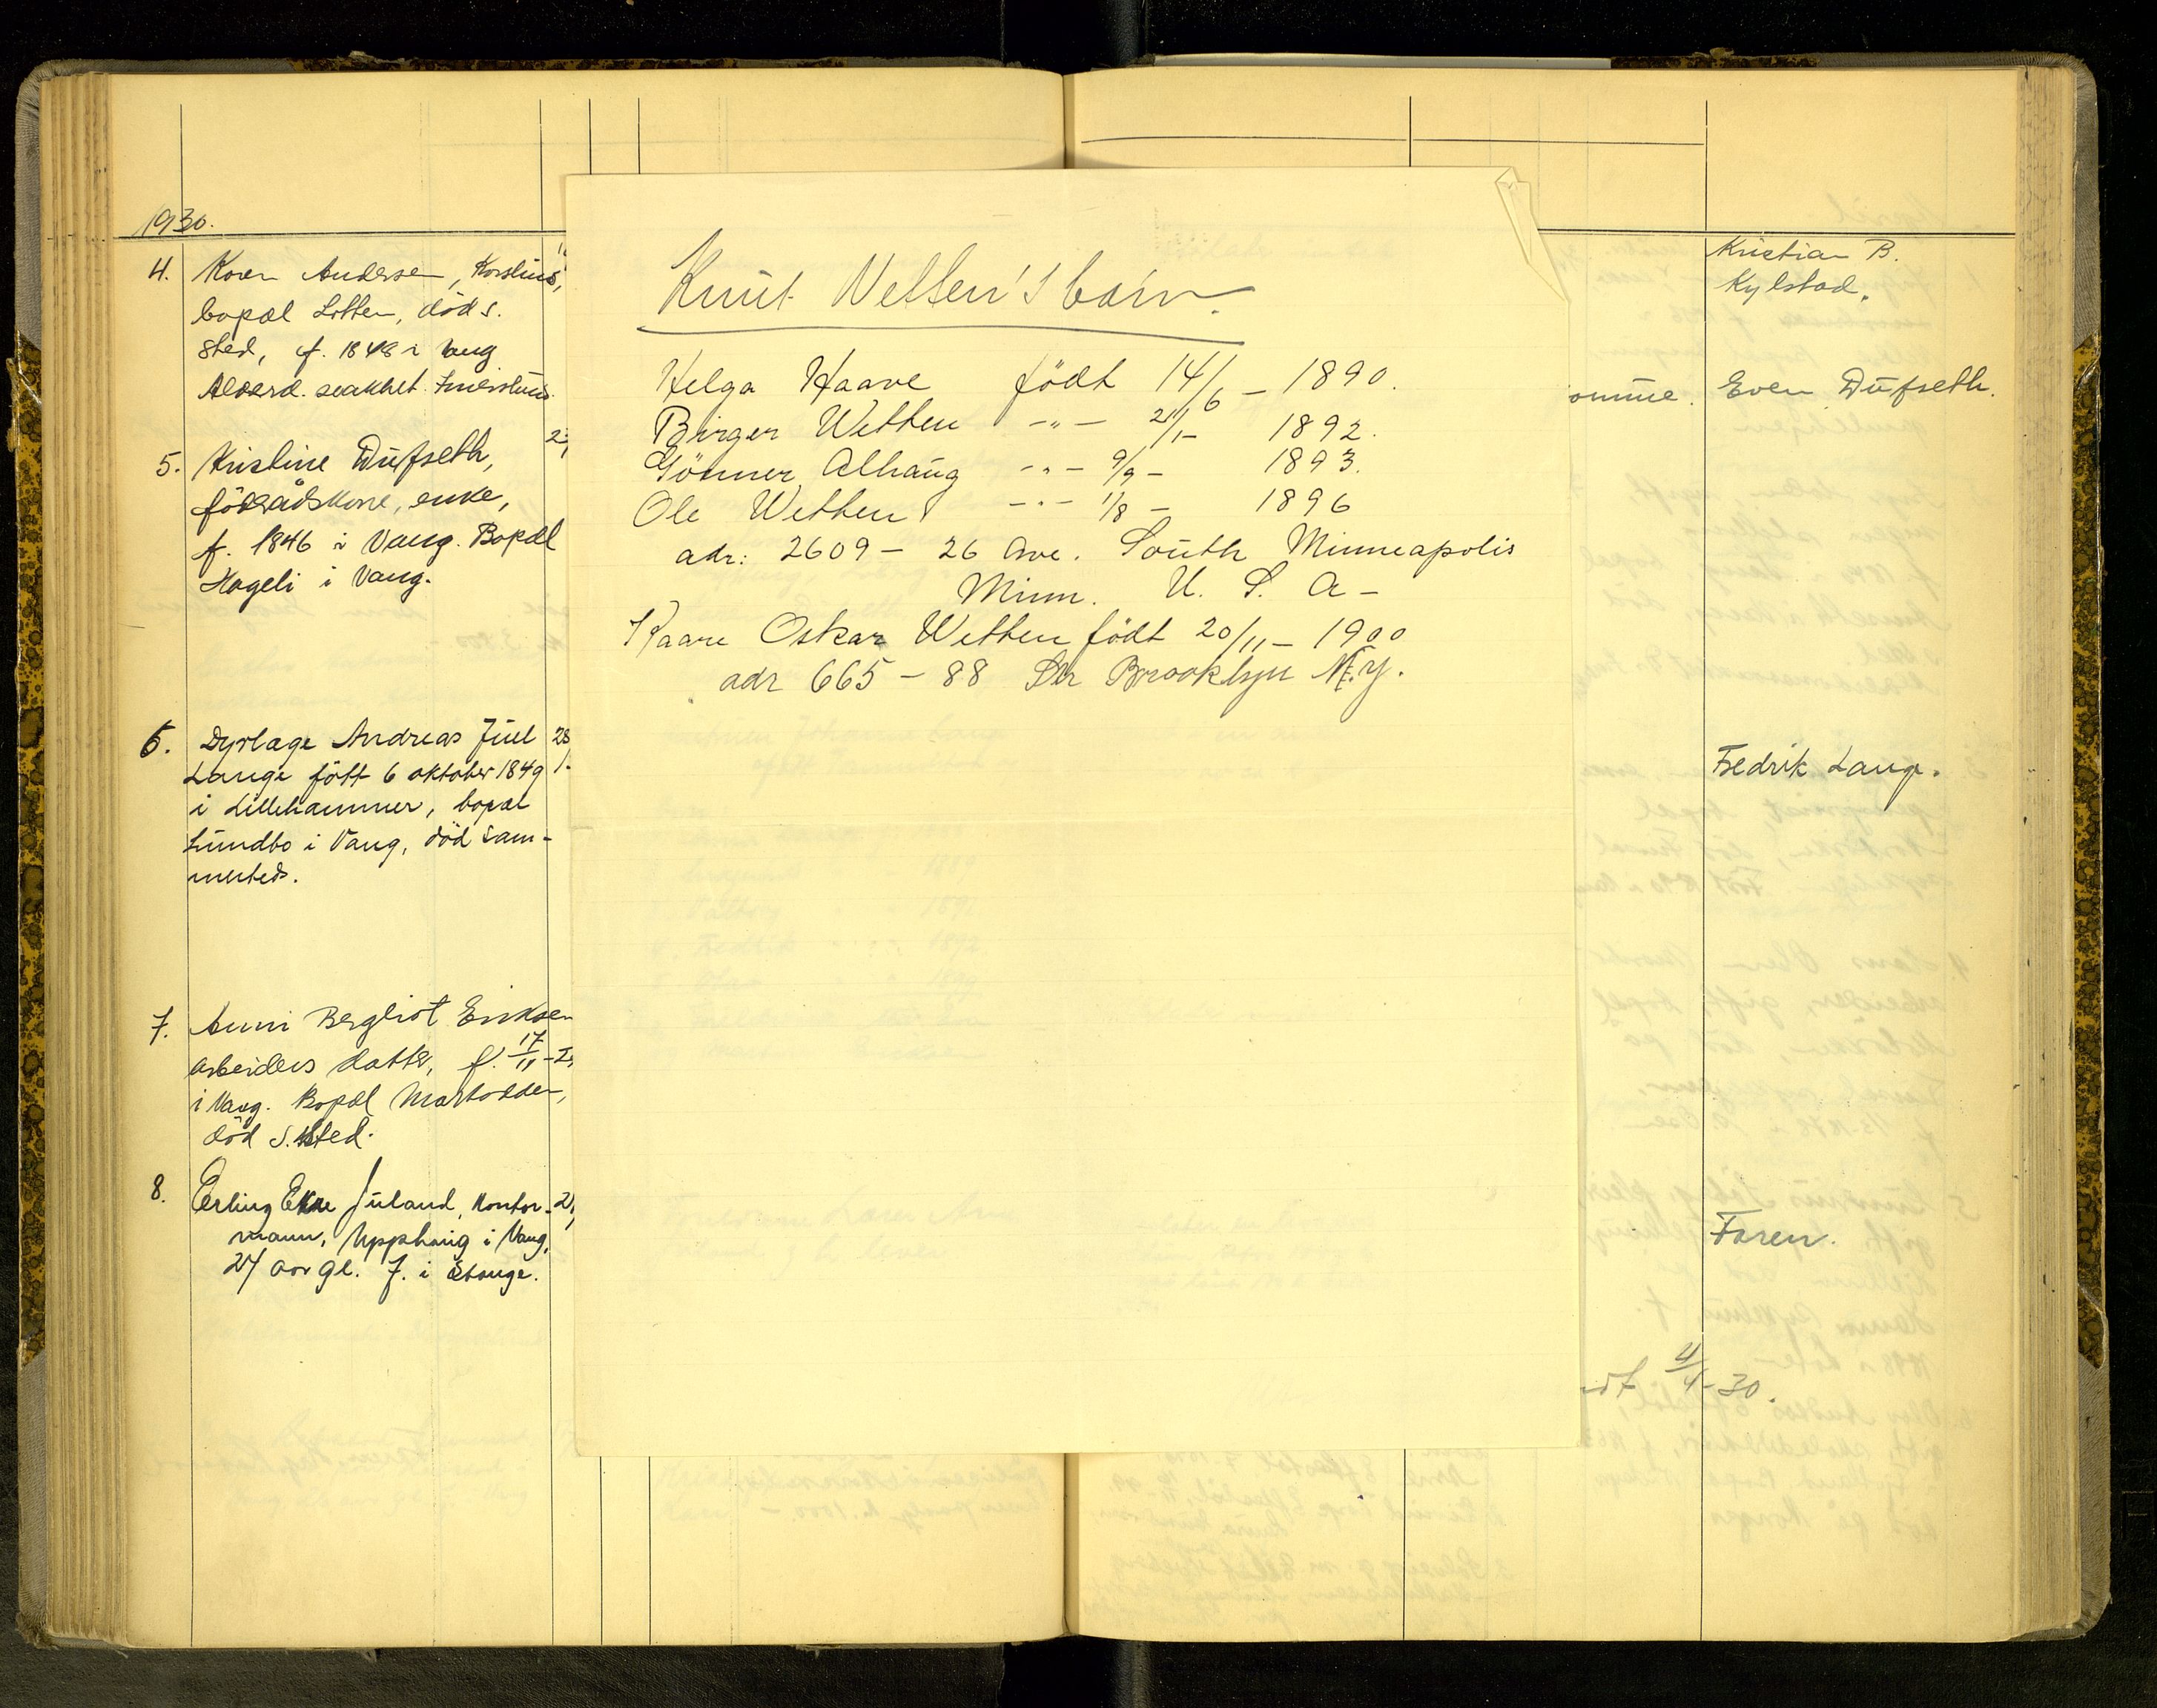 1930.
4. Karen Andersen, Korslund,
bopæl Litten, död s.
sted, f. 1848 i Vang
Alderd. svakhet.
5. Kristine Dufseth,
föderådskone, enke,
f. 1846 i Vang. Bopæl
Hageli i Vang.
6. Dyrlæge Andreas Juel
Lange fött 6 oktober 1849
i Lillehammer, bopæl
Lundbo i Vang, död sam-
mesteds.
7. Anni Bergliot Eriksen
arbeiders datter, f. 17/11 -
i Vang. Bopæl Martodden,
död s. sted.
8. Erling Ekre Juland, Kontor-
mann, Upphaug i Vang,
24 aar gl. F. i Stange.
Knut Wetten's barn
Helga Haave födt 14/6 - 1890.
Birger Wetten -"- 21/1 - 1892.
Gönner Alhaug -"- 9/9 - 1893.
Ole Wetten -"- 1/8 - 1896
adr: 2609 - 26 Ave. South Minneapolis
Minn. U. S. A -
Kaare Oskar Wetten födt 20/11 - 1900
adr 665 - 88 Str Brooklyn N.Y.
Kristian B.
Kylstad.
omme. Even Dufseth.
Fredrik Lange.
Faren.
4/4-30.